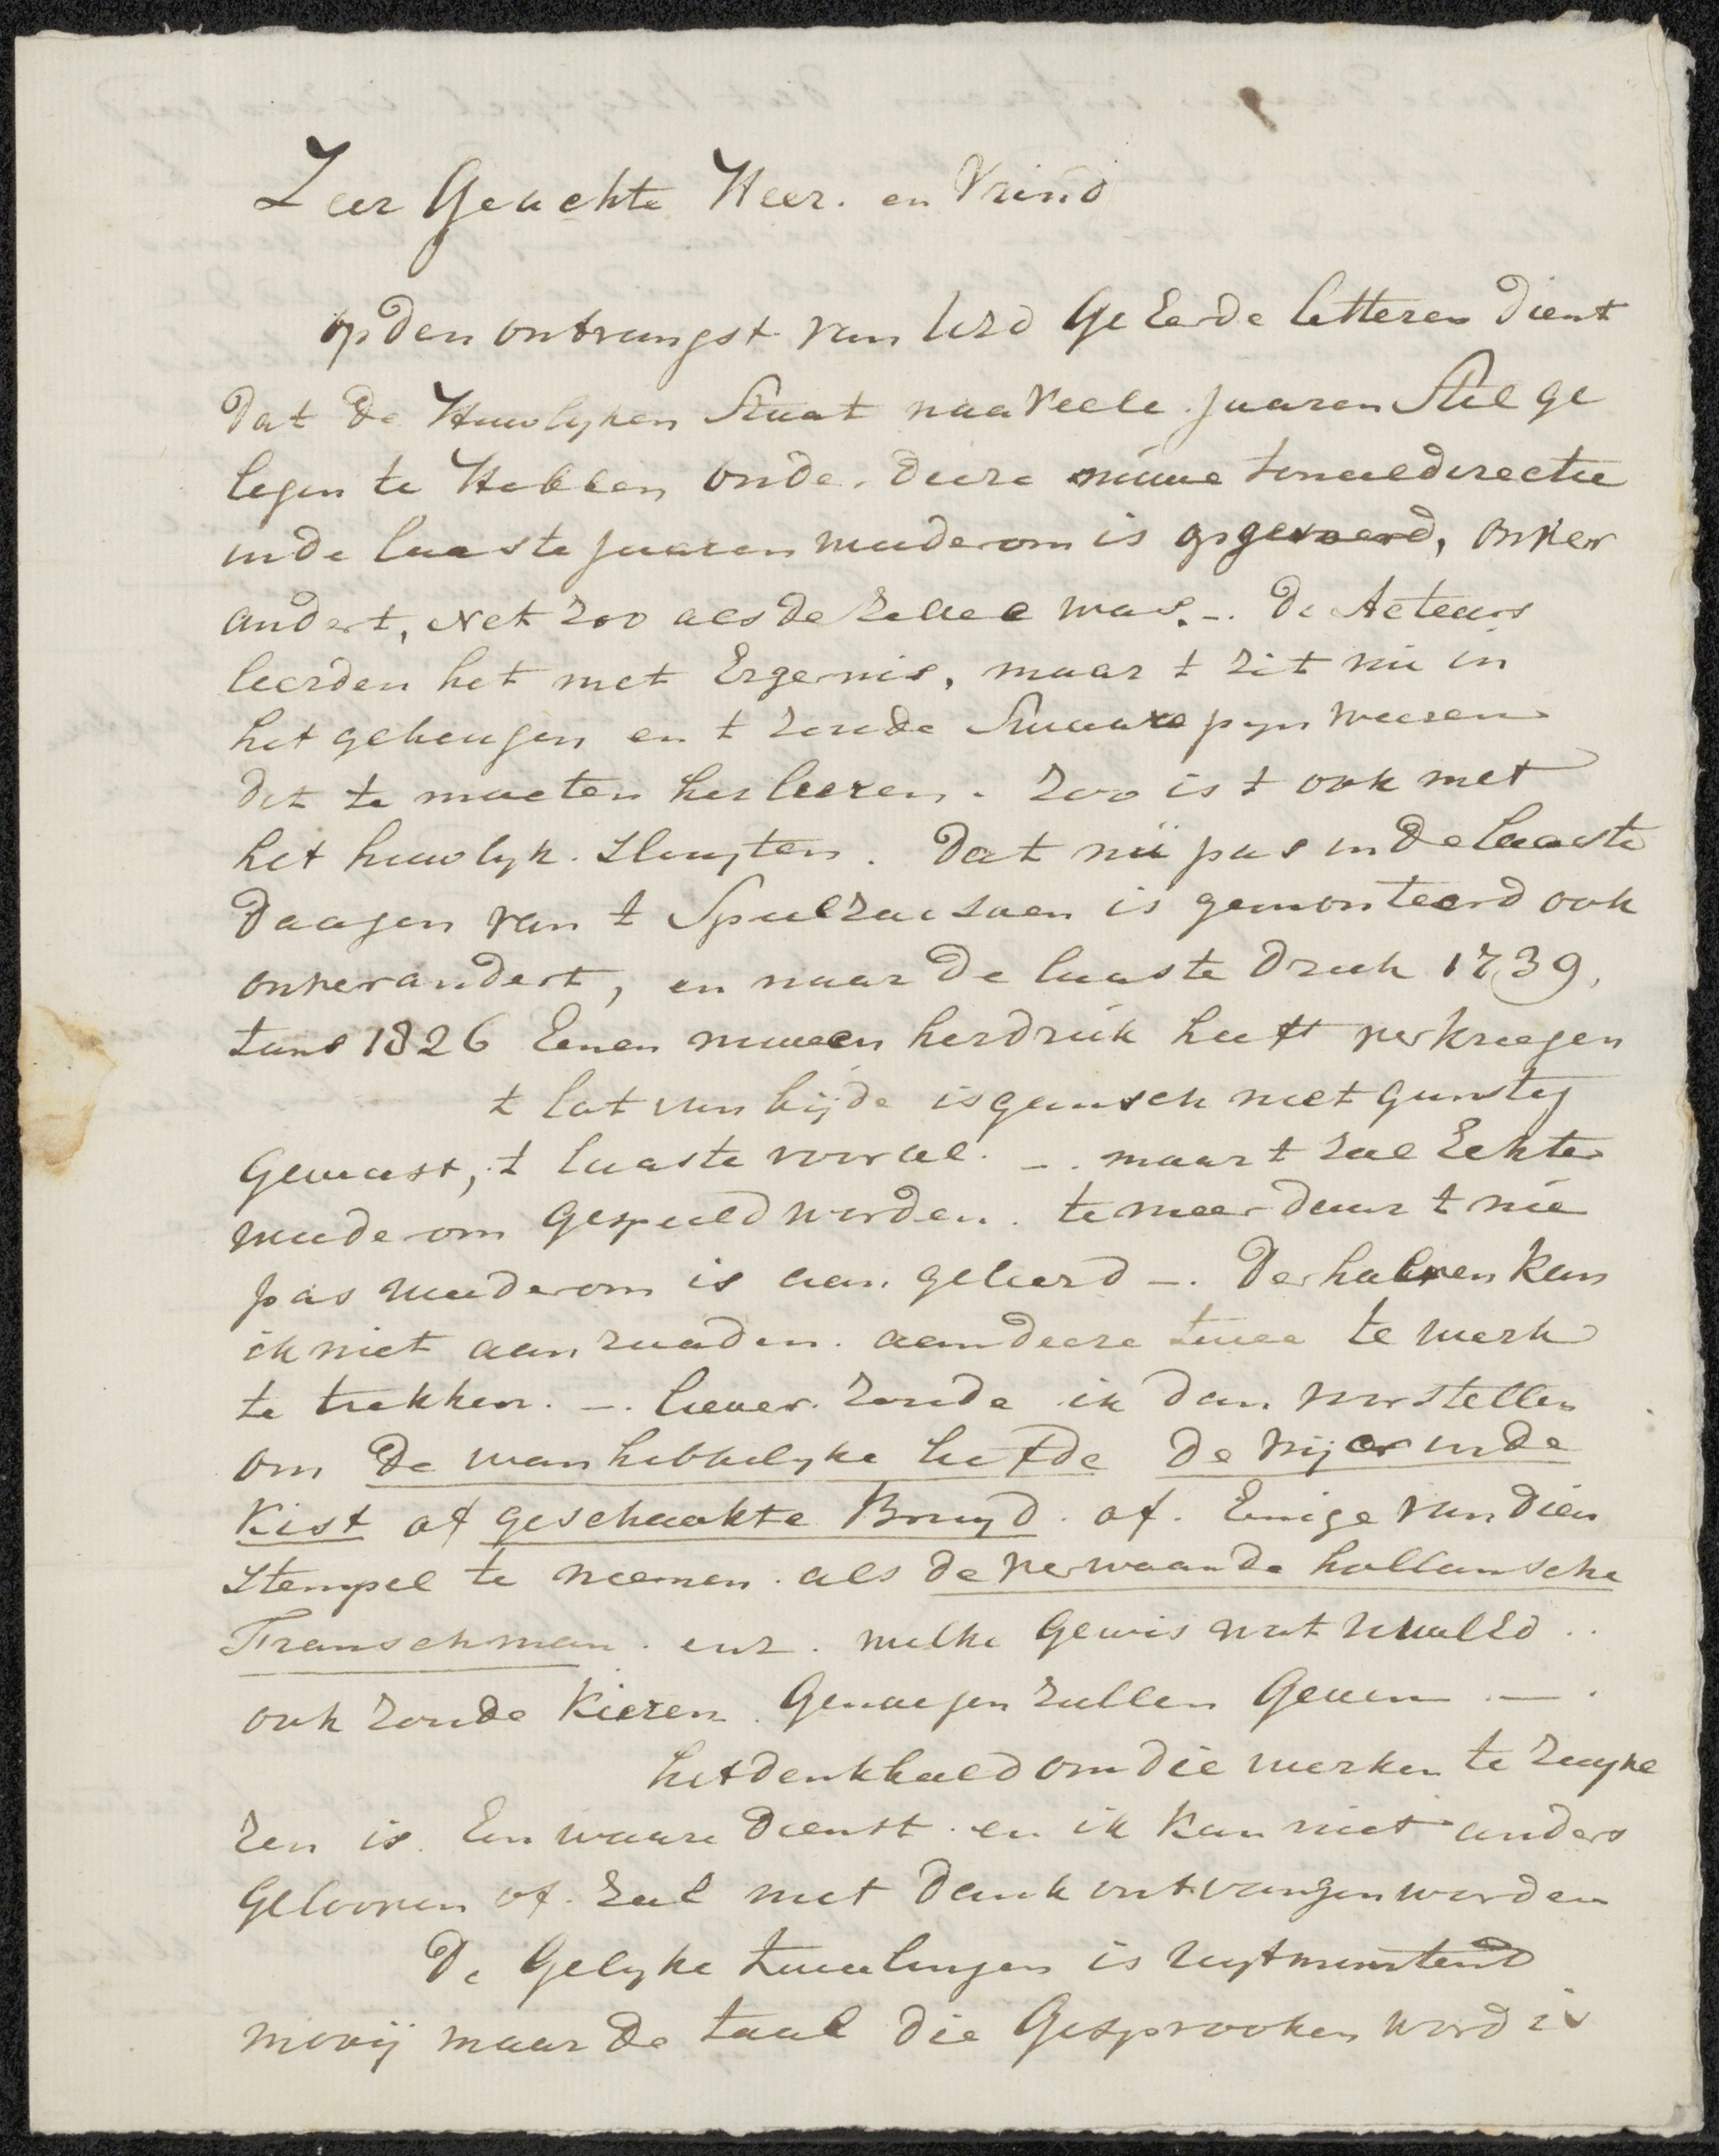 Zeer Geachte Heer. en Vrind
op den ontvangst van UEd GeEerde letteren dient
dat de Huwlyken Staat naa veele jaaren Stil ge
legen te Hebben onde. deeze nieuwe toneeldirectie
in de laaste jaaren wederom is opgevoerd, onver
andert, Net zoo als dezelve was. -. De Acteurs
leerden het met Ergernis, maar t zit nu in
het geheugen en t zoude Swaare pyn weezen
dit te moeten herleeren. Zoo is t ook met
het huwlyk. Sluyten. dat nu pas in de laaste
daagen van t Speelzaisoen is gemonteerd ook
onverandert, en naar de laaste druk 1739,
tans 1826 Eenen nieuwen herdruk heeft verkreegen
t lot van bijde is gansch niet gunstig
Geweest, t laaste vooral. -. maar t zal Echter
wederom Gespeeld worden. te meer daar t nu
pas wederom is aan geleerd -. Derhalven kan
ik niet aanraaden. aan deeze twee te werk
te trekken. -. liever. zoude ik dan voorstellen
om de wanhebbelyke liefde de vrijer in de
Kist of geschaakte Bruyd. of. Eenige van dien
Stempel te neemen. als de verwaande hollansche
Franschman. enz. welke Gewis wat UwelEd..
ook zoude kiezen. Genoegen zullen Geeven .—.
het denkbeeld om die werken te zuyve
ren is. Een waare dienst. en ik kan niet anders
Gelooven of. zal met dank ontvangen worden
De Gelyke tweelingen is uytmuntend
mooij maar de taal die Gesprooken word is